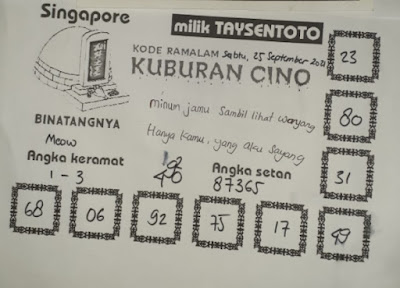 Singapore
milik TAYSENTOTO
KODE RAMALAM Sabtu, 25 September 2021
KUBURAN CINO
23
minum jamu Sambil lihat wayang
80
BINATANGNYA
Hanya kamu, yang aku Sayang
Meow
Angka keramat
Angka setan
1 - 3
87365
31
68
06
92
75
17
49